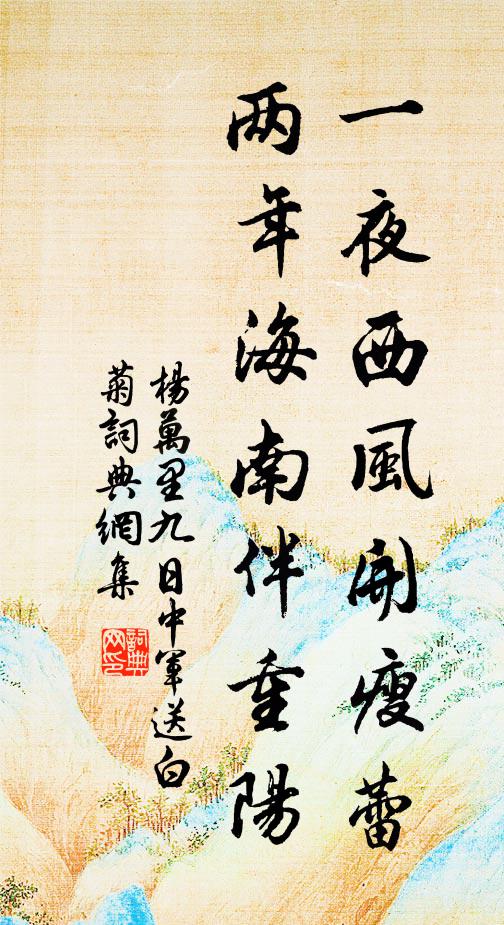 一夜西風開瘦蕾
两年海南伴重陽
楊萬里九日中軍送白
菊詞典網集
詞典網印